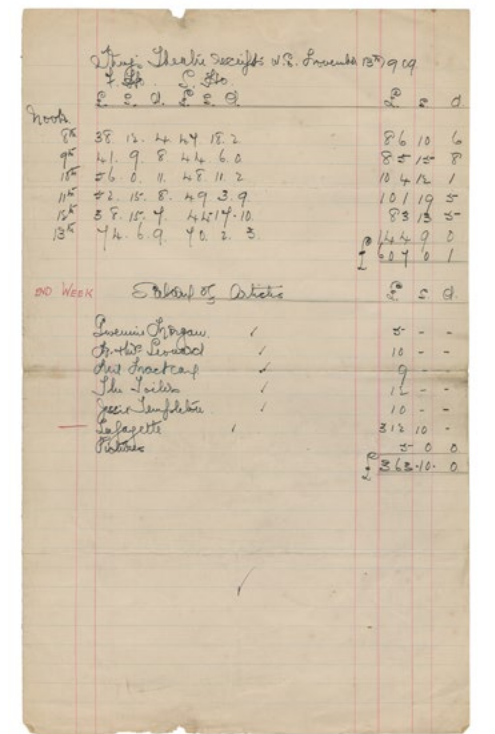 Theatre Receipts W.E. November 13th 1909
£ s. d. £ s. d. £ s d
8th 38. 12. 4 47. 18. 2 86 10 6
9th 41. 9. 8 44. 6. 0 85 15 8
10th 56. 0. 11. 48. 11. 2 104 12 1
11th 52. 15. 8. 49. 3. 9. 101 19 5
12th 38. 15. 7 44. 17. 10. 83 13 5
13th 74. 6. 9. 70. 2. 3. 144 9 0
£ 607 0 1
2ND WEEK Salary of Artists £ s. d.
Morgan ✓ 5 - -
Leonard ✓ 10 - -
✓ 9 - -
The Toilers ✓ 12 - -
Jessie Templeton ✓ 10 - -
Lafayette ✓ 312 10 -
Pictures 5 0 0
£ 363 . 10 . 0